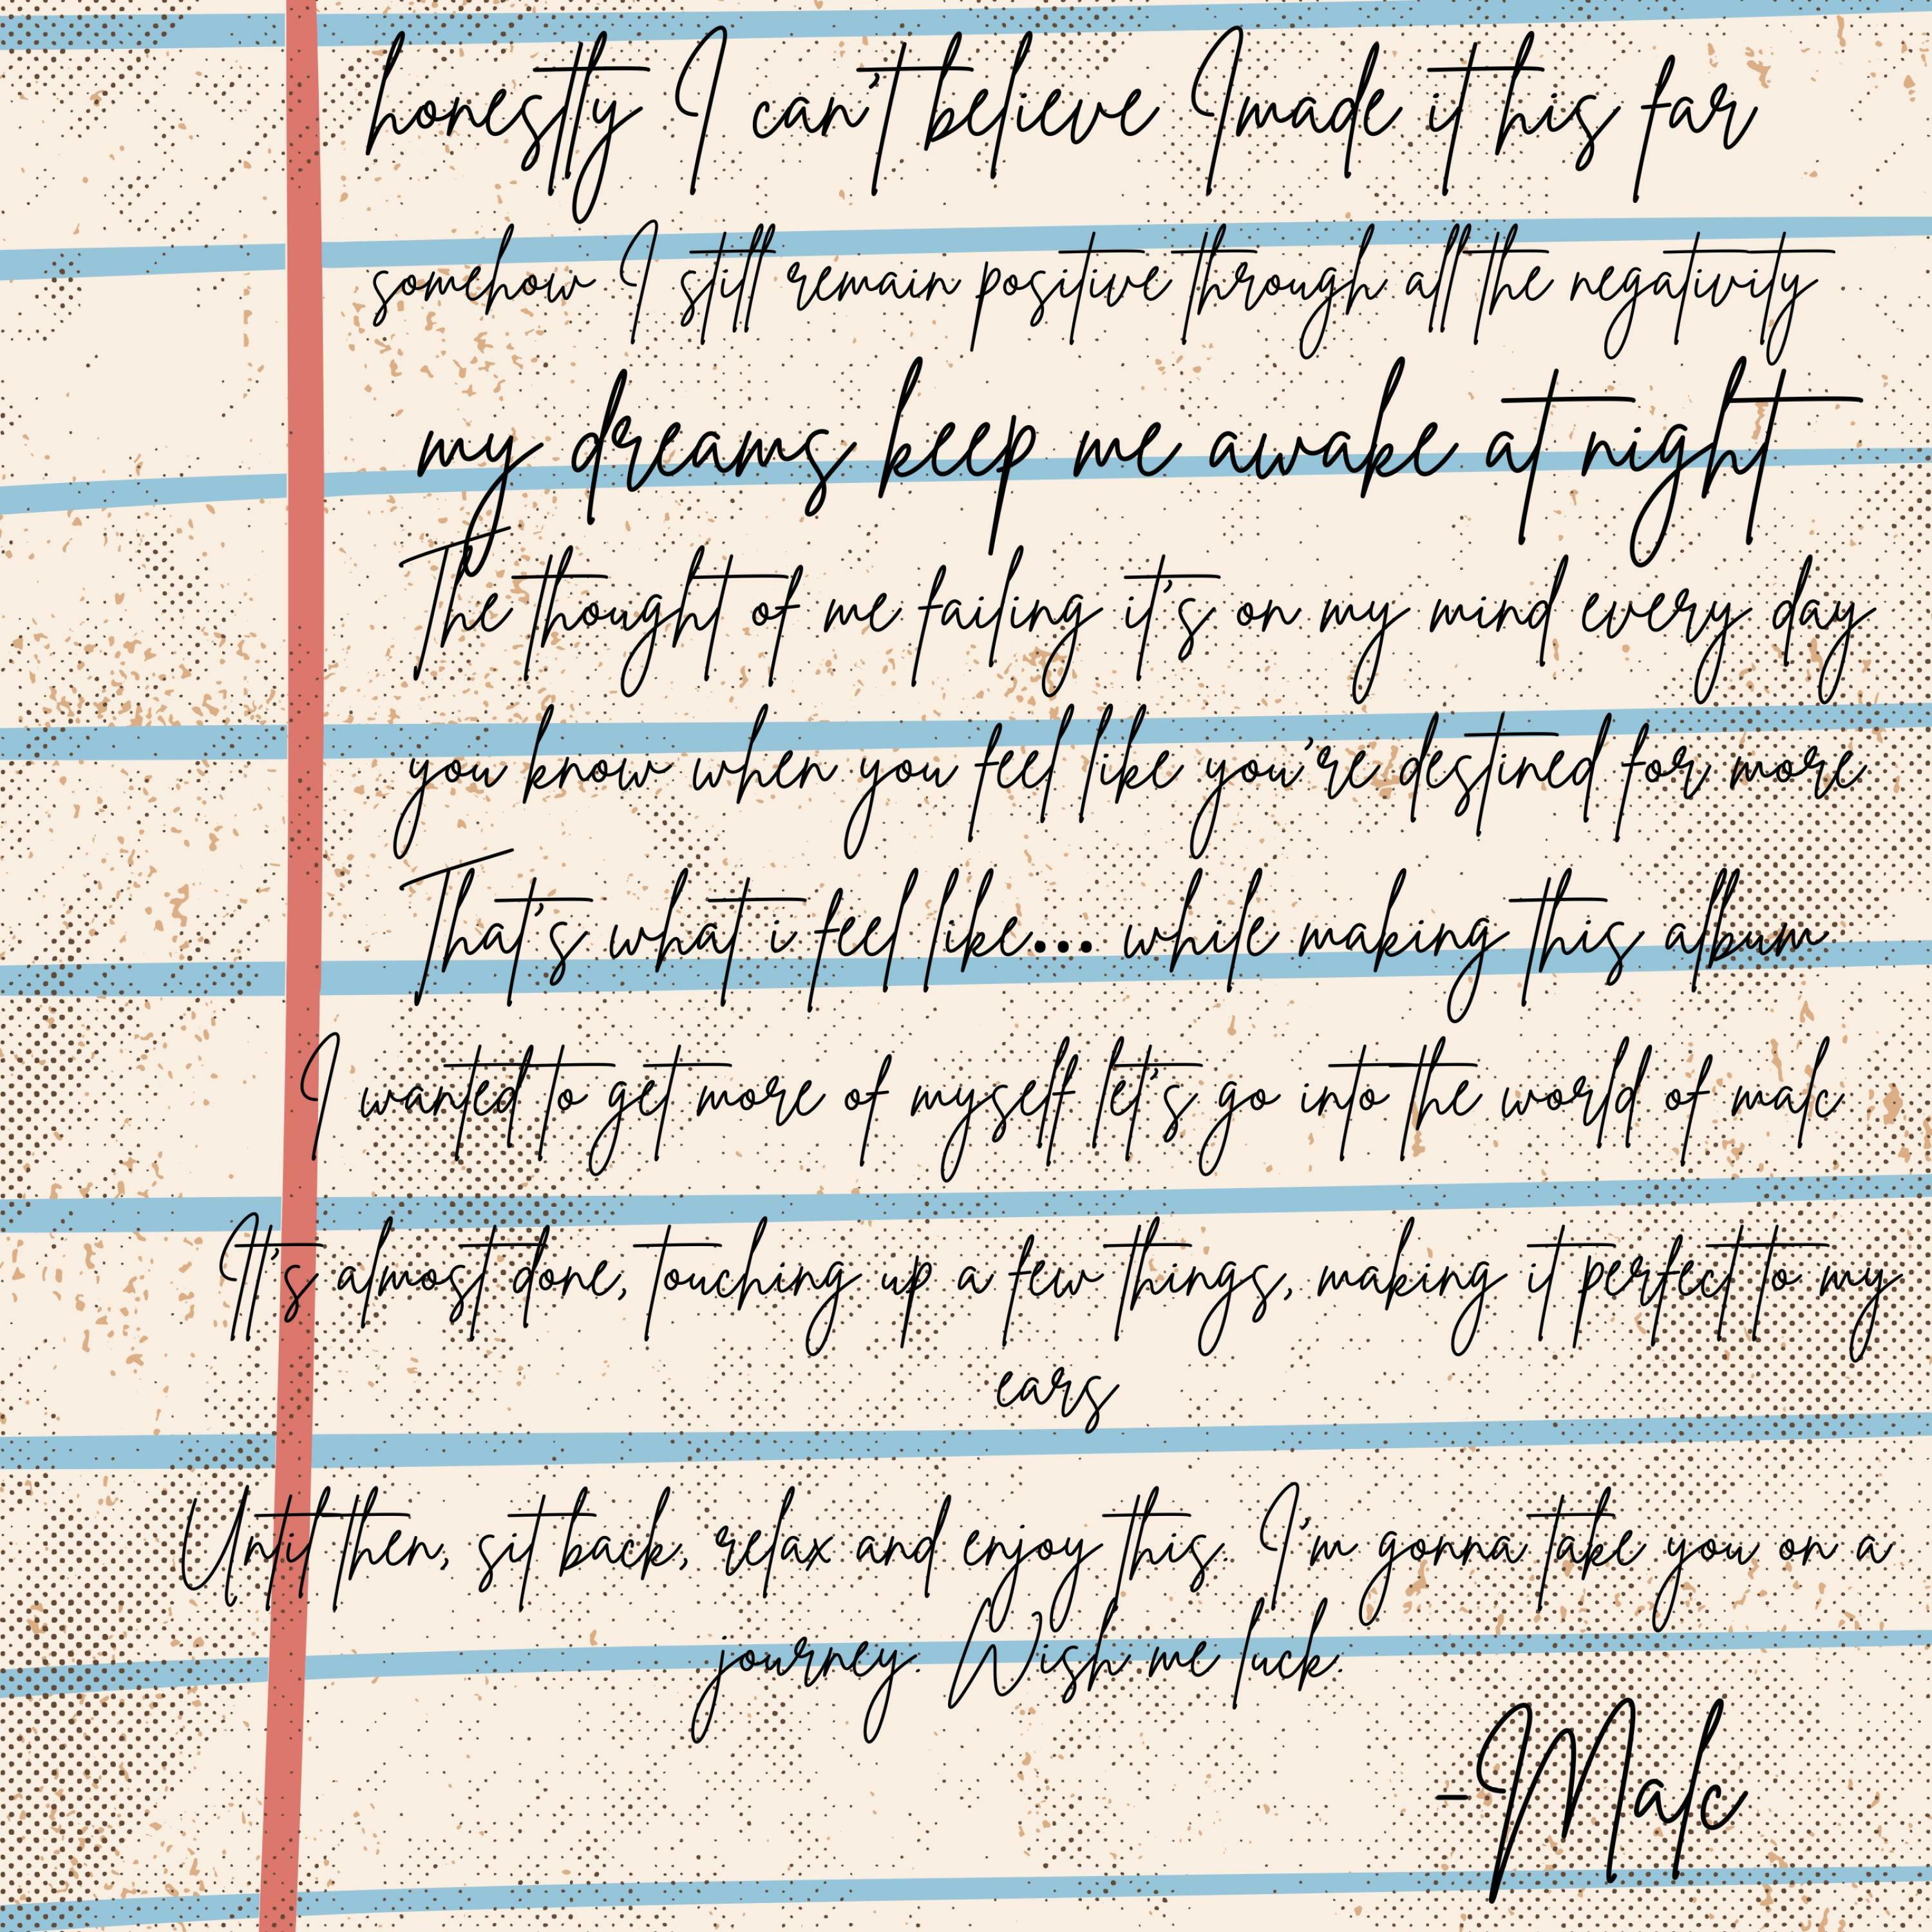 honestly I can't believe Imade it this far
somehow I still remain positive through all the negativity
my dreams keep me awake at night
The thought of me failing it's on my mind every day
you know when you feel like you're destined for more
That's what i feel like... while making this album
I wanted to get more of myself let's go into the world of malc
It's almost done, touching up a few things, making it perfect to my
ears
Until then, sit back, relax and enjoy this. I'm gonna take you on a
journey. Wish me luck.
-Malc